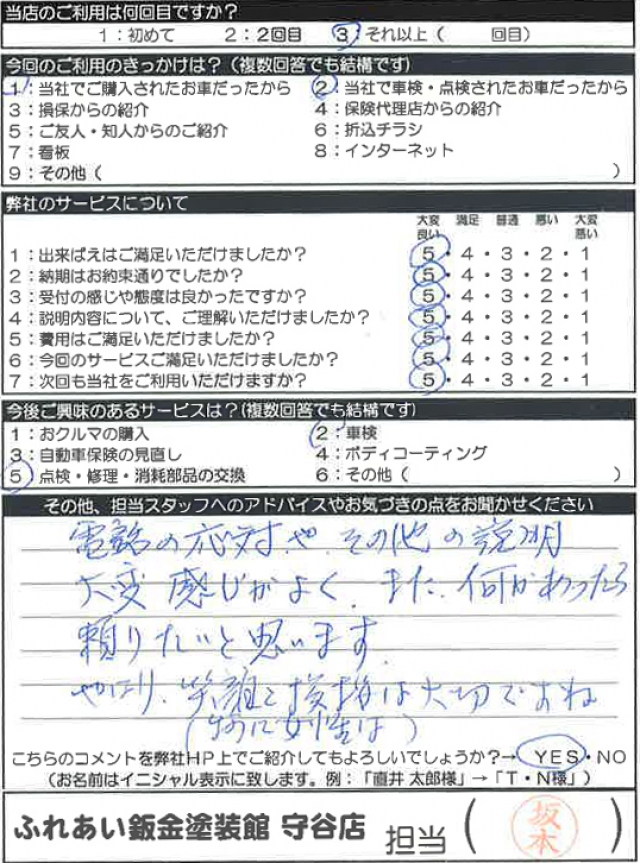 当店のご利用は何回目ですか？
1：初めて 2：2回目 3：それ以上（ 回目）
今回のご利用のきっかけは？（複数回答でも結構です）
1：当社でご購入されたお車だったから 2：当社で車検・点検されたお車だったから
3：損保からの紹介 4：保険代理店からの紹介
5：ご友人・知人からのご紹介 6：折込チラシ
7：看板 8：インターネット
9：その他（ ）
弊社のサービスについて
大変良い 満足 普通 悪い 大変悪い
1：出来ばえはご満足いただけましたか？ 5・4・3・2・1
2：納期はお約束通りでしたか？ 5・4・3・2・1
3：受付の感じや態度は良かったですか？ 5・4・3・2・1
4：説明内容について、ご理解いただけましたか？ 5・4・3・2・1
5：費用はご満足いただけましたか？ 5・4・3・2・1
6：今回のサービスご満足いただけましたか？ 5・4・3・2・1
7：次回も当社をご利用いただけますか？ 5・4・3・2・1
今後ご興味のあるサービスは？（複数回答でも結構です）
1：おクルマの購入 2：車検
3：自動車保険の見直し 4：ボディコーティング
5：点検・修理・消耗部品の交換 6：その他（ ）
その他、担当スタッフへのアドバイスやお気づきの点をお聞かせください
電話の応対や、その他の説明
大変感じがよく、また、何かあったら
頼りたいと思います。
やはり、笑顔と挨拶は大切ですね
（特に女性は）
こちらのコメントを弊社HP上でご紹介してもよろしいでしょうか？→ YES・NO
（お名前はイニシャル表示に致します。例：「直井 太郎様」→「T・N様」）
ふれあい鈑金塗装館 守谷店 担当（坂本）